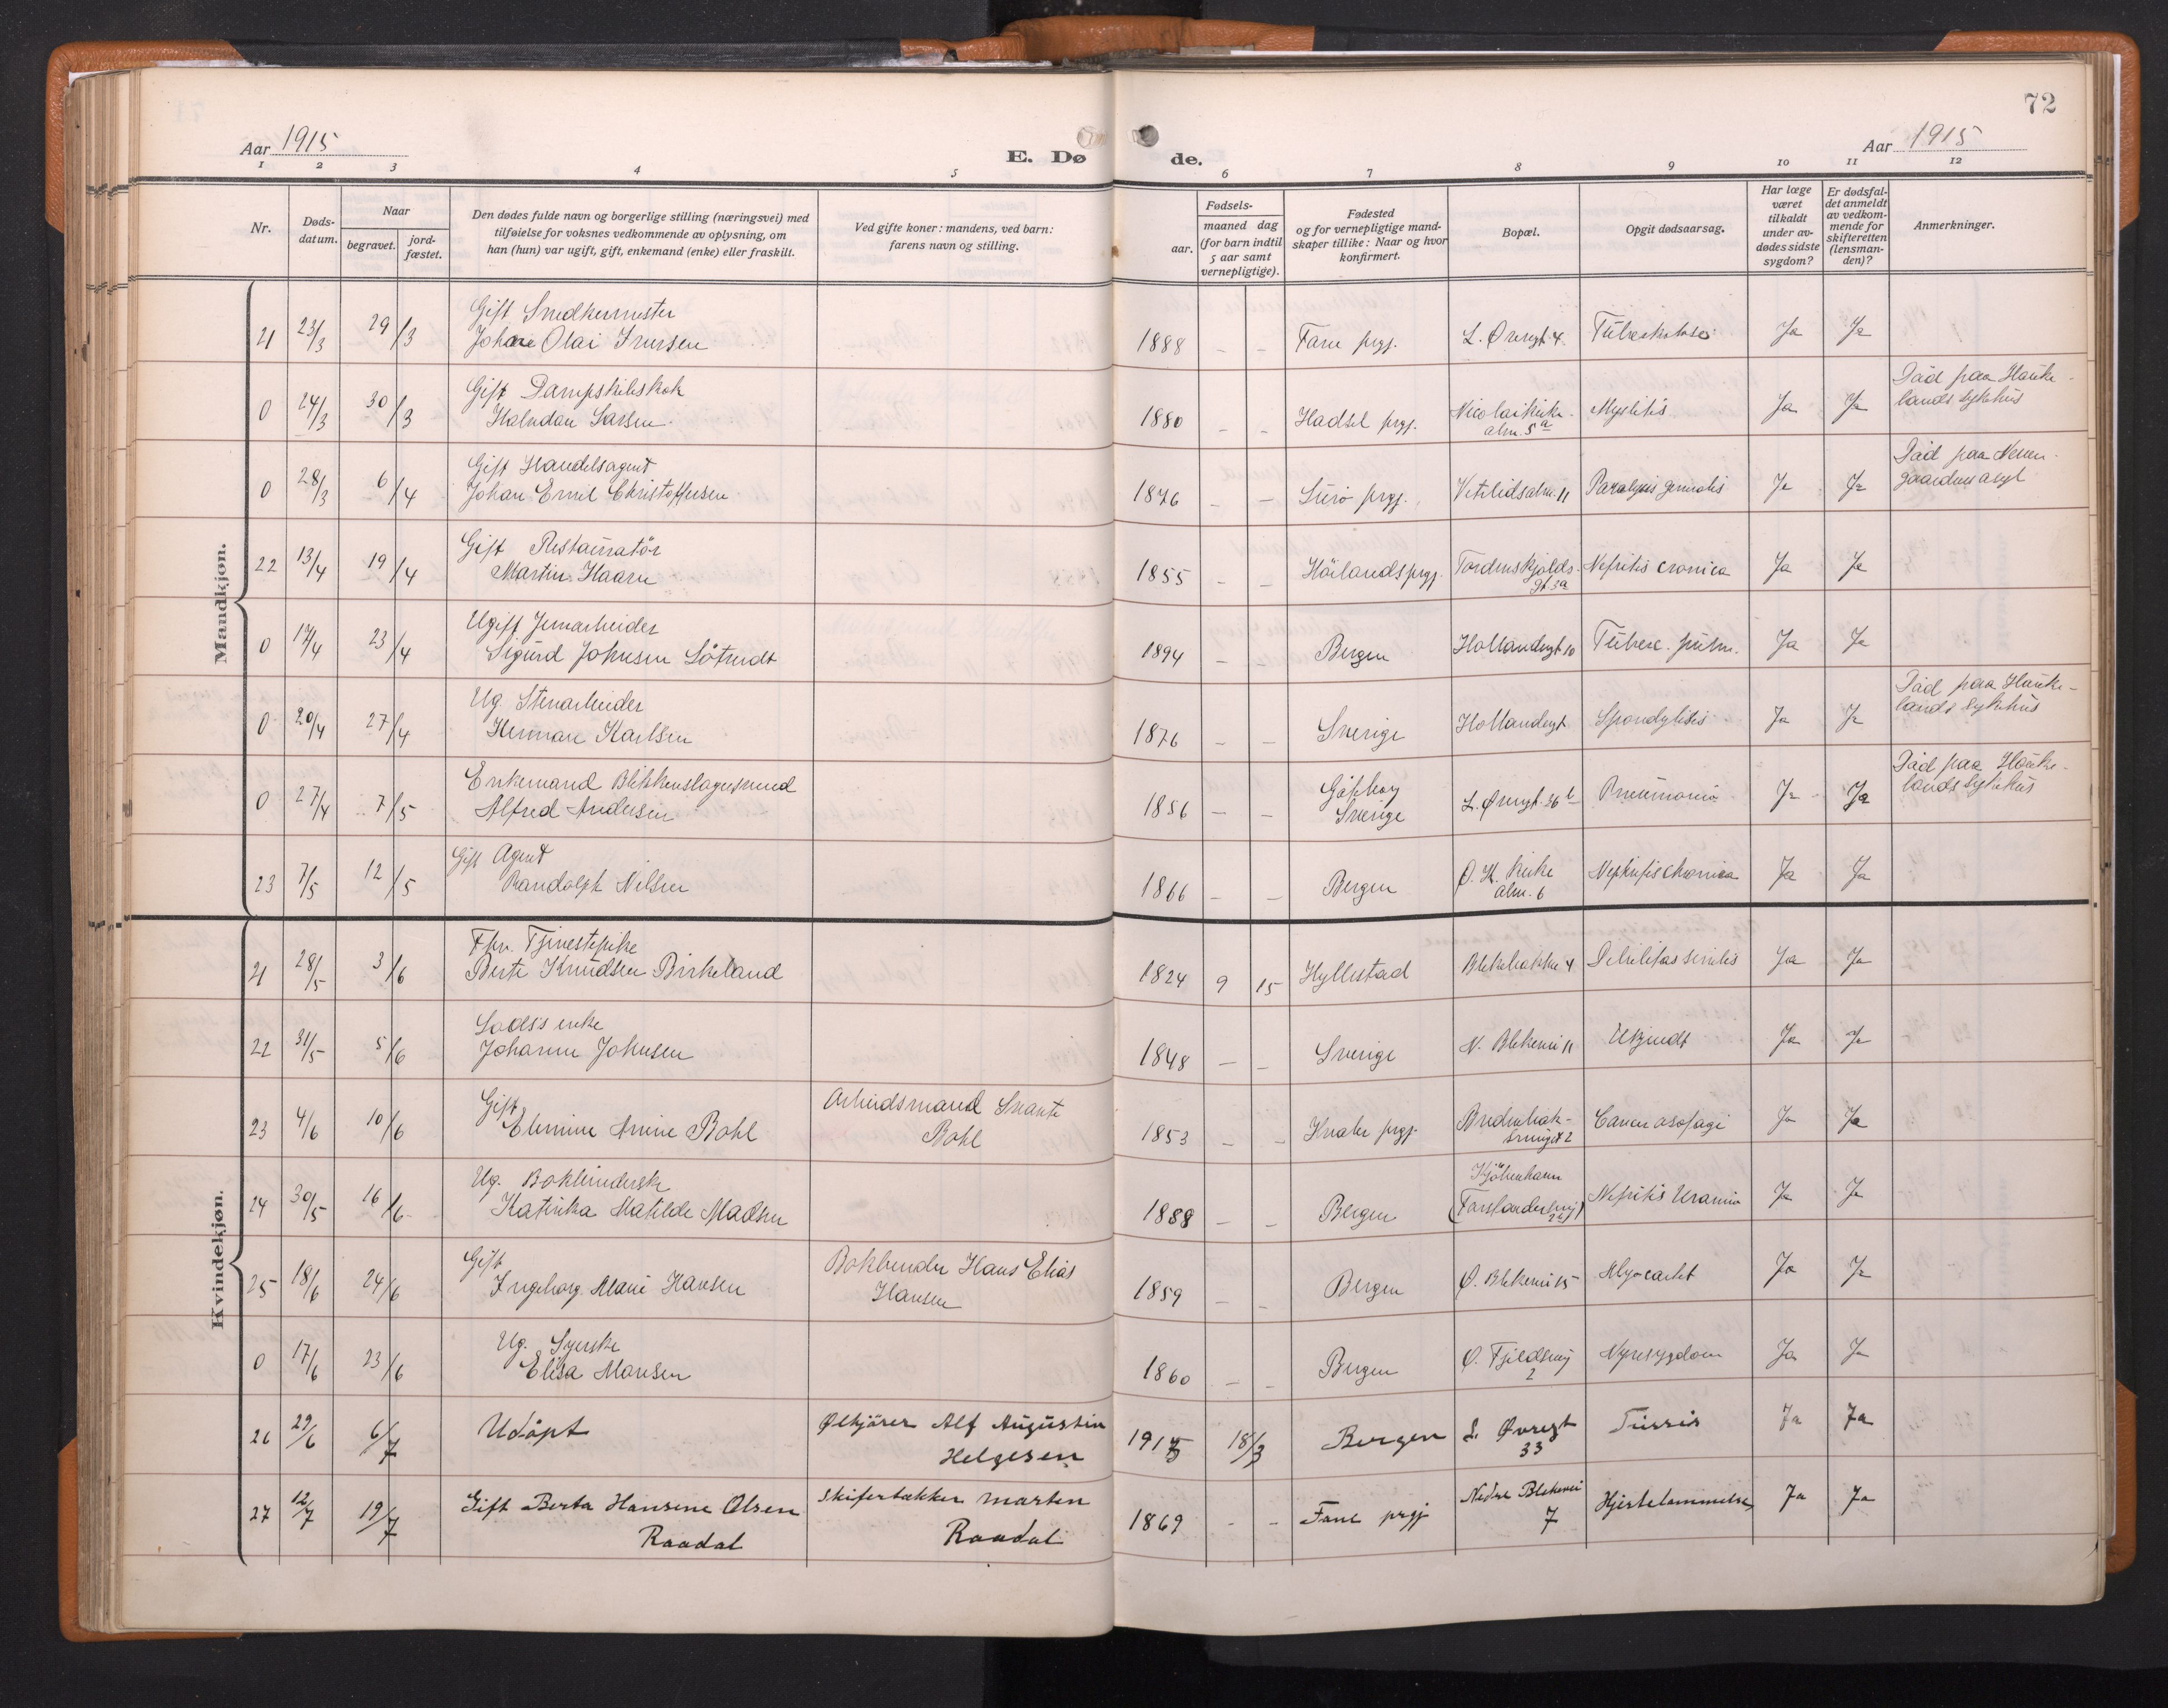 72
Aar 1915
E. Dø
de.
Aar 1915
1 2 3 4 5 6 7 8 9 10 11 12
Nr.
Døds-
datum.
Naar
begravet.
jord-
fæstet.
Den dødes fulde navn og borgerlige stilling (næringsvei) med
tilføielse for voksnes vedkommende av oplysning, om
han (hun) var ugift, gift, enkemand (enke) eller fraskilt.
Ved gifte koner: mandens, ved barn:
farens navn og stilling.
Fødsels-
aar.
maaned dag
(for barn indtil
5 aar samt
vernepligtige).
Fødested
og for vernepligtige mand-
skaper tillike: Naar og hvor
konfirmert.
Bopæl.
Opgit dødsaarsag.
Har læge
været
tilkaldt
under av-
dødes sidste
sygdom?
Er dødsfal-
det anmeldt
av vedkom-
mende for
skifteretten
(lensman-
den)?
Anmerkninger.
Mandkjøn.
Gift Snedkermester
21 23/3 29/3 Johan Olai Iversen 1888 - - Fane prgj. L. Øvregt. 4. Tuberkulose Ja Ja
Gift Dampskibskok
0 24/3 30/3 Halvdan Larsen 1880 - - Hadsel prgj. Nicolaikirke-
alm. 5a Myelitis Ja Ja Død paa Hauke-
lands sykehus
Gift Handelsagent
0 28/3 6/4 Johan Emil Christoffersen 1846 - - prgj. Vetrlidsalm. 11 Paralysis generalis Ja Ja Død paa Neven-
gaardens asyl
Gift Restauratør
22 13/4 19/4 Martin Haarr 1855 - - Höilands prgj. Tordenskjolds-
gt. 3a Nefritis cronica Ja Ja
Ugift Jernarbeider
0 17/4 23/4 Sigurd Johnsen 1894 - - Bergen Hollandergt 10 Tuberc. pulm. Ja Ja
Ug. Stenarbeider
0 20/4 27/4 Herman Karlsen 1876 - - Sverige Hollandergt Spondylitis Ja Ja Död paa Hauke-
lands sykehus
Enkemand Blikkenslagersvend
0 27/4 7/5 Alfred Andersen 1856 - - Götborg
Sverige L. Øvregt. 36b Pneumonia Ja Ja Död paa Hauke-
lands sykehus
Gift Agent
23 7/5 12/5 Randolph Nilsen 1866 - - Bergen Ø. K. kirke
alm. 6 Nephritis chronica Ja Ja
Kvindekjøn.
Fhv. Tjenestepike
21 28/5 3/6 Berte Knudsen Birkeland 1824 9 15 Hyllestad Blekebakke 4 Debilitas senilis Ja Ja
Lods's enke
22 31/5 5/6 Johanne Johnsen 1848 - - Sverige N. Blekevei 11 Ukjendt Ja Ja
Gift
23 4/6 10/6 Elenine Amine Bohl Arbeidsmand Svante
Bohl 1853 - - Hvaler prgj. 2 Cancer Ja Ja
Ug. Bokbinderske
24 30/5 16/6 Katinka Matilde Madsen 1888 - - Bergen Kjöbenhavn
Nefritis Uramia Ja Ja
Gift
25 18/6 24/6 Ingeborg Marie Hansen Bokbinder Hans Elias
Hansen 1859 - - Bergen Ø. Blekevei 15 Myocardit Ja Ja
Ug. Syerske
0 17/6 23/6 Elisa Monsen 1860 - - Bergen Ø. Fjeldsmug
2 Nyresygdom Ja Ja
26 29/6 6/7 Udöpt Ølkjörer Alf Augustin
Helgesen 1915 18/3 Bergen L. Øvregt
33 Tussis Ja Ja
27 12/7 19/7 Gift Berta Hansine Olsen
Raadal Skifertækker Marten
Raadal 1869 - - Fane prgj Nedre Blekevei
7 Hjertelammelse Ja Ja